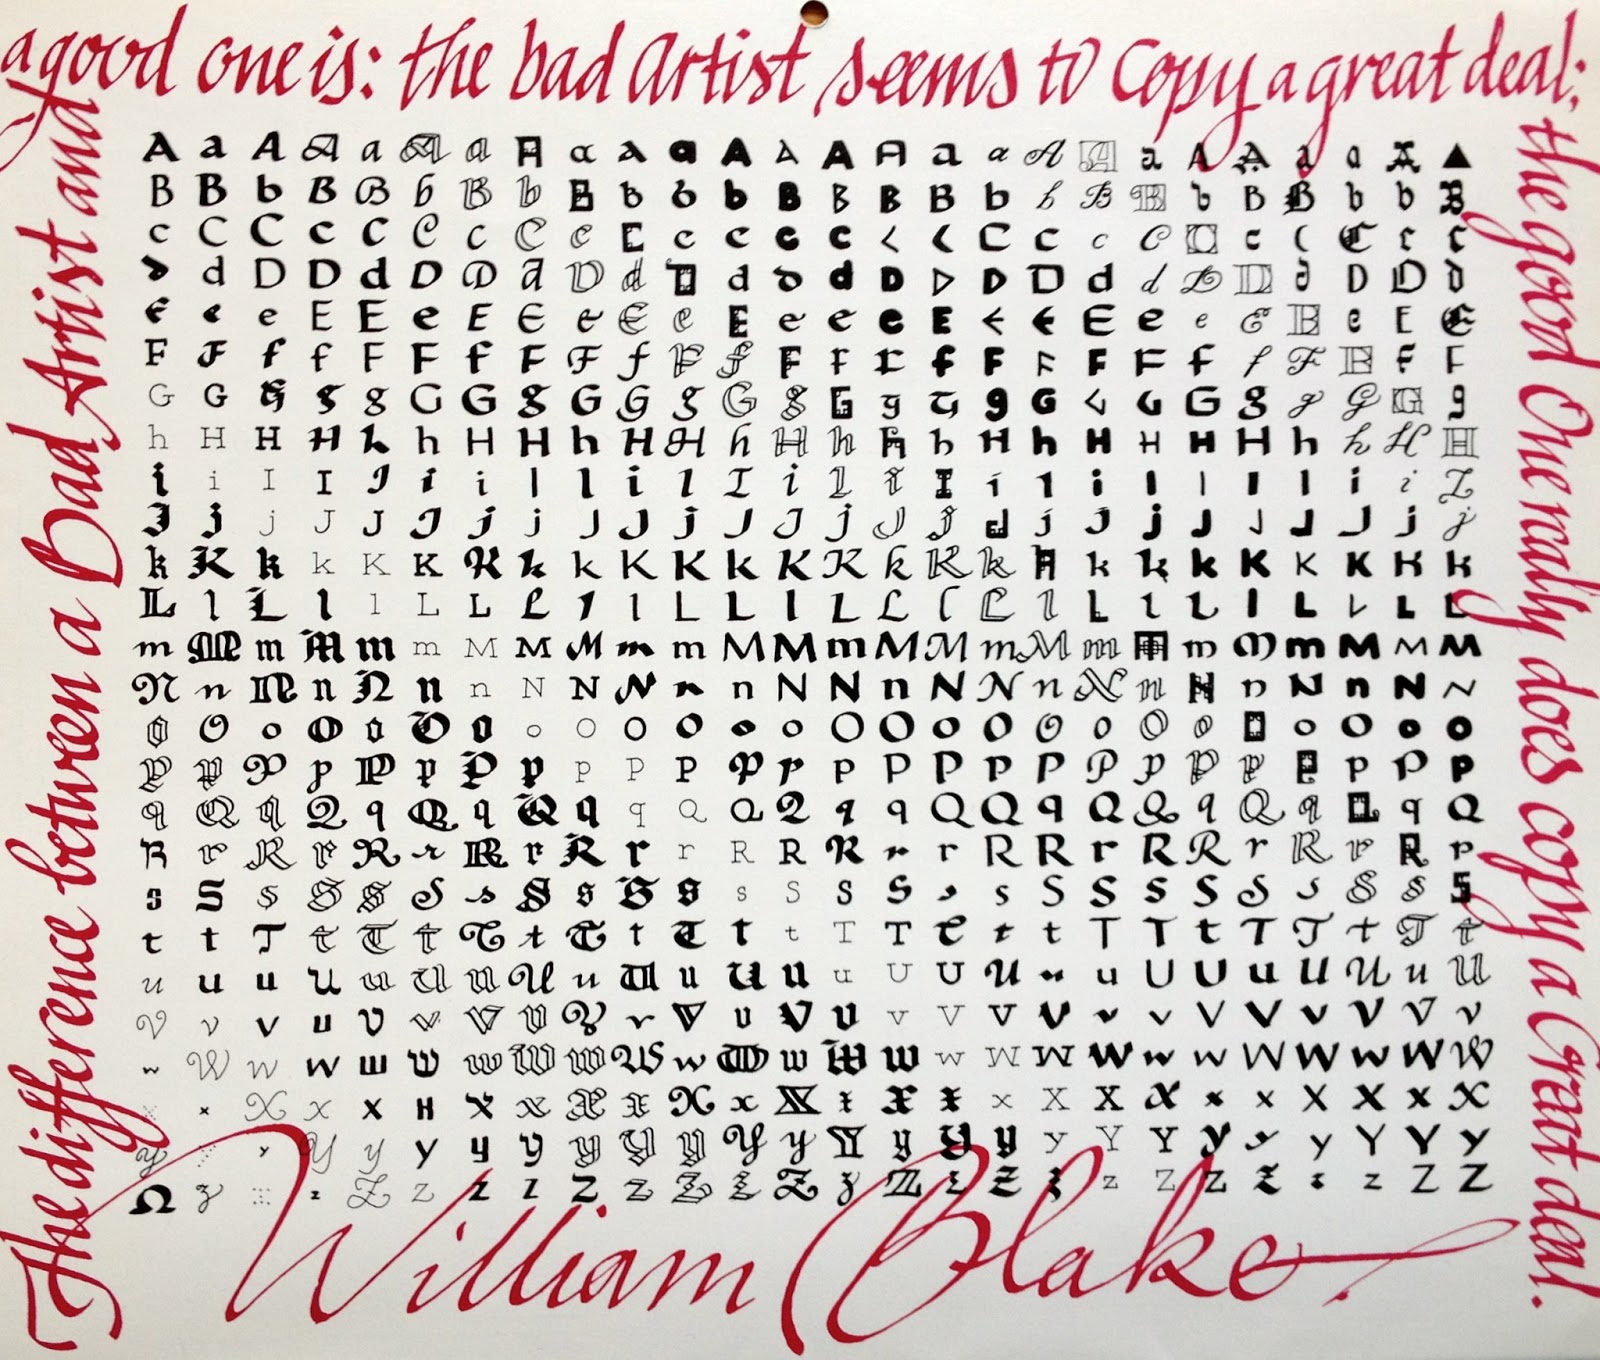 The difference between a Bad Artist and
a good one is: the bad Artist seems to Copy a great deal;
the good One really does copy a Great deal.
A a A A a A a A a a a A A A A a a A A a A A a a A A
B B b B B b B b B b b b B B B B b b B B b B B b b B
c C C c C C c C c C c c c c c c C c c C C c c C c c
d d D D d D D d D d D d d d D D D D d d D D d D D d
e e e E E e E E e E e E e e e E e e E e e E E e E E
F F f f F F f F F f F f F f f f F F F F f f F F f F
G G G g g G G g G G g G g G g G g G G G G g g G G g
h H H H h h H H h H H h H h H h H h H H H H h h H H
i i I I I i i I I i I I i I i I i I i I I I I i i I
J j j J J J j j J J j J J j J j J j J j J J J J j j
k K k k K K K k k K K k K K k K k K k k k K K K K k
L l L l l L L L l l L L l L L l L l L l l l L L L L
m M m M m m M M M m m M M m M M m M m M m M m M M M
N n N n N n n N N N n n N N n N N n N n N n N n N N
o O o O o O o o O O O o o O O o O O o O o O o O o o
P p P p P p P p p P P P p p P P p P P p P p P p P p
q Q q Q q Q q Q q q Q Q Q q q Q Q q Q Q q Q q Q q Q
R r R r R r R r R r r R R R r r R R r R R r R r R r
s S s S s S s S s S s s S S S s s S S s S S s S s S
t t T t T t T t T t T t t T T T t t T T t T T t T t
u u u U u U u U u U u U u u U U U u u U U u U U u U
V v v u V v V v V v V v V v v V V V v v V V v V V v
w W w w w W w W w W w W w W w w W W W w w W W w W W
x x X x x H X x X x X x X x X x x X X X x x X X x X
y y y Y y y y y y Y y Y y Y y Y y y Y Y Y y y Y Y y
Ω z z z Z z z z Z z Z z Z z Z z Z z z Z Z Z z z Z Z
William Blake.